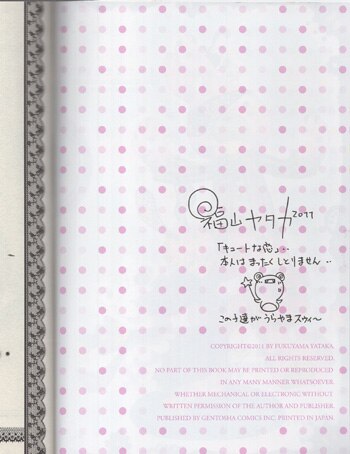 福山ヤタカ 2011
「キュートな恋」‥
本人はまったくしとりません‥
この子達がうらやまスウィ〜
COPYRIGHT©2011 BY FUKUYAMA YATAKA
ALL RIGHTS RESERVED.
NO PART OF THIS BOOK MAY BE PRINTED OR REPRODUCED
IN ANY MANY MANNER WHATSOEVER
WHETHER MECHANICAL OR ELECTRONIC WITHOUT
WRITTEN PERMISSION OF THE AUTHOR AND PUBLISHER.
PUBLISHED BY GENTOSHA COMICS INC. PRINTED IN JAPAN.